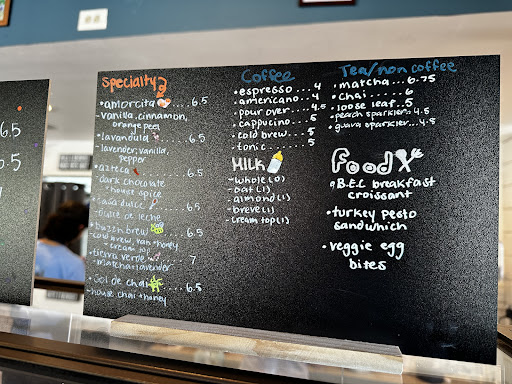 6.5
5
Specialty
•amorcita....6.5
-vanilla, cinnamon,
orange peel
•lavandula.....6.5
-lavender, vanilla,
pepper
•azteca.....6.5
dark chocolate
house spice
•caña dulce....6.5
-dulce de leche
•buzzn brew.....6.5
-cold brew, raw honey
cream top
•tierra verde....7
-matcha+lavender
•Sol de chai....6.5
-house chai+honey
Coffee
•espresso...4
•americano...4
•pour over....4.5
•cappucino...5
•cold brew...5
•tonic.....5
MILK
-whole(0)
-oat(1)
-almond(1)
-breve(1)
-cream top(1)
Tea/non coffee
•matcha...6.75
•chai.....6
•loose leaf..5
•peach sparkler.4.5
•guava sparkler...4.5
Food
•B.E.C breakfast
croissant
•turkey pesto
sandwhich
•veggie egg
bites